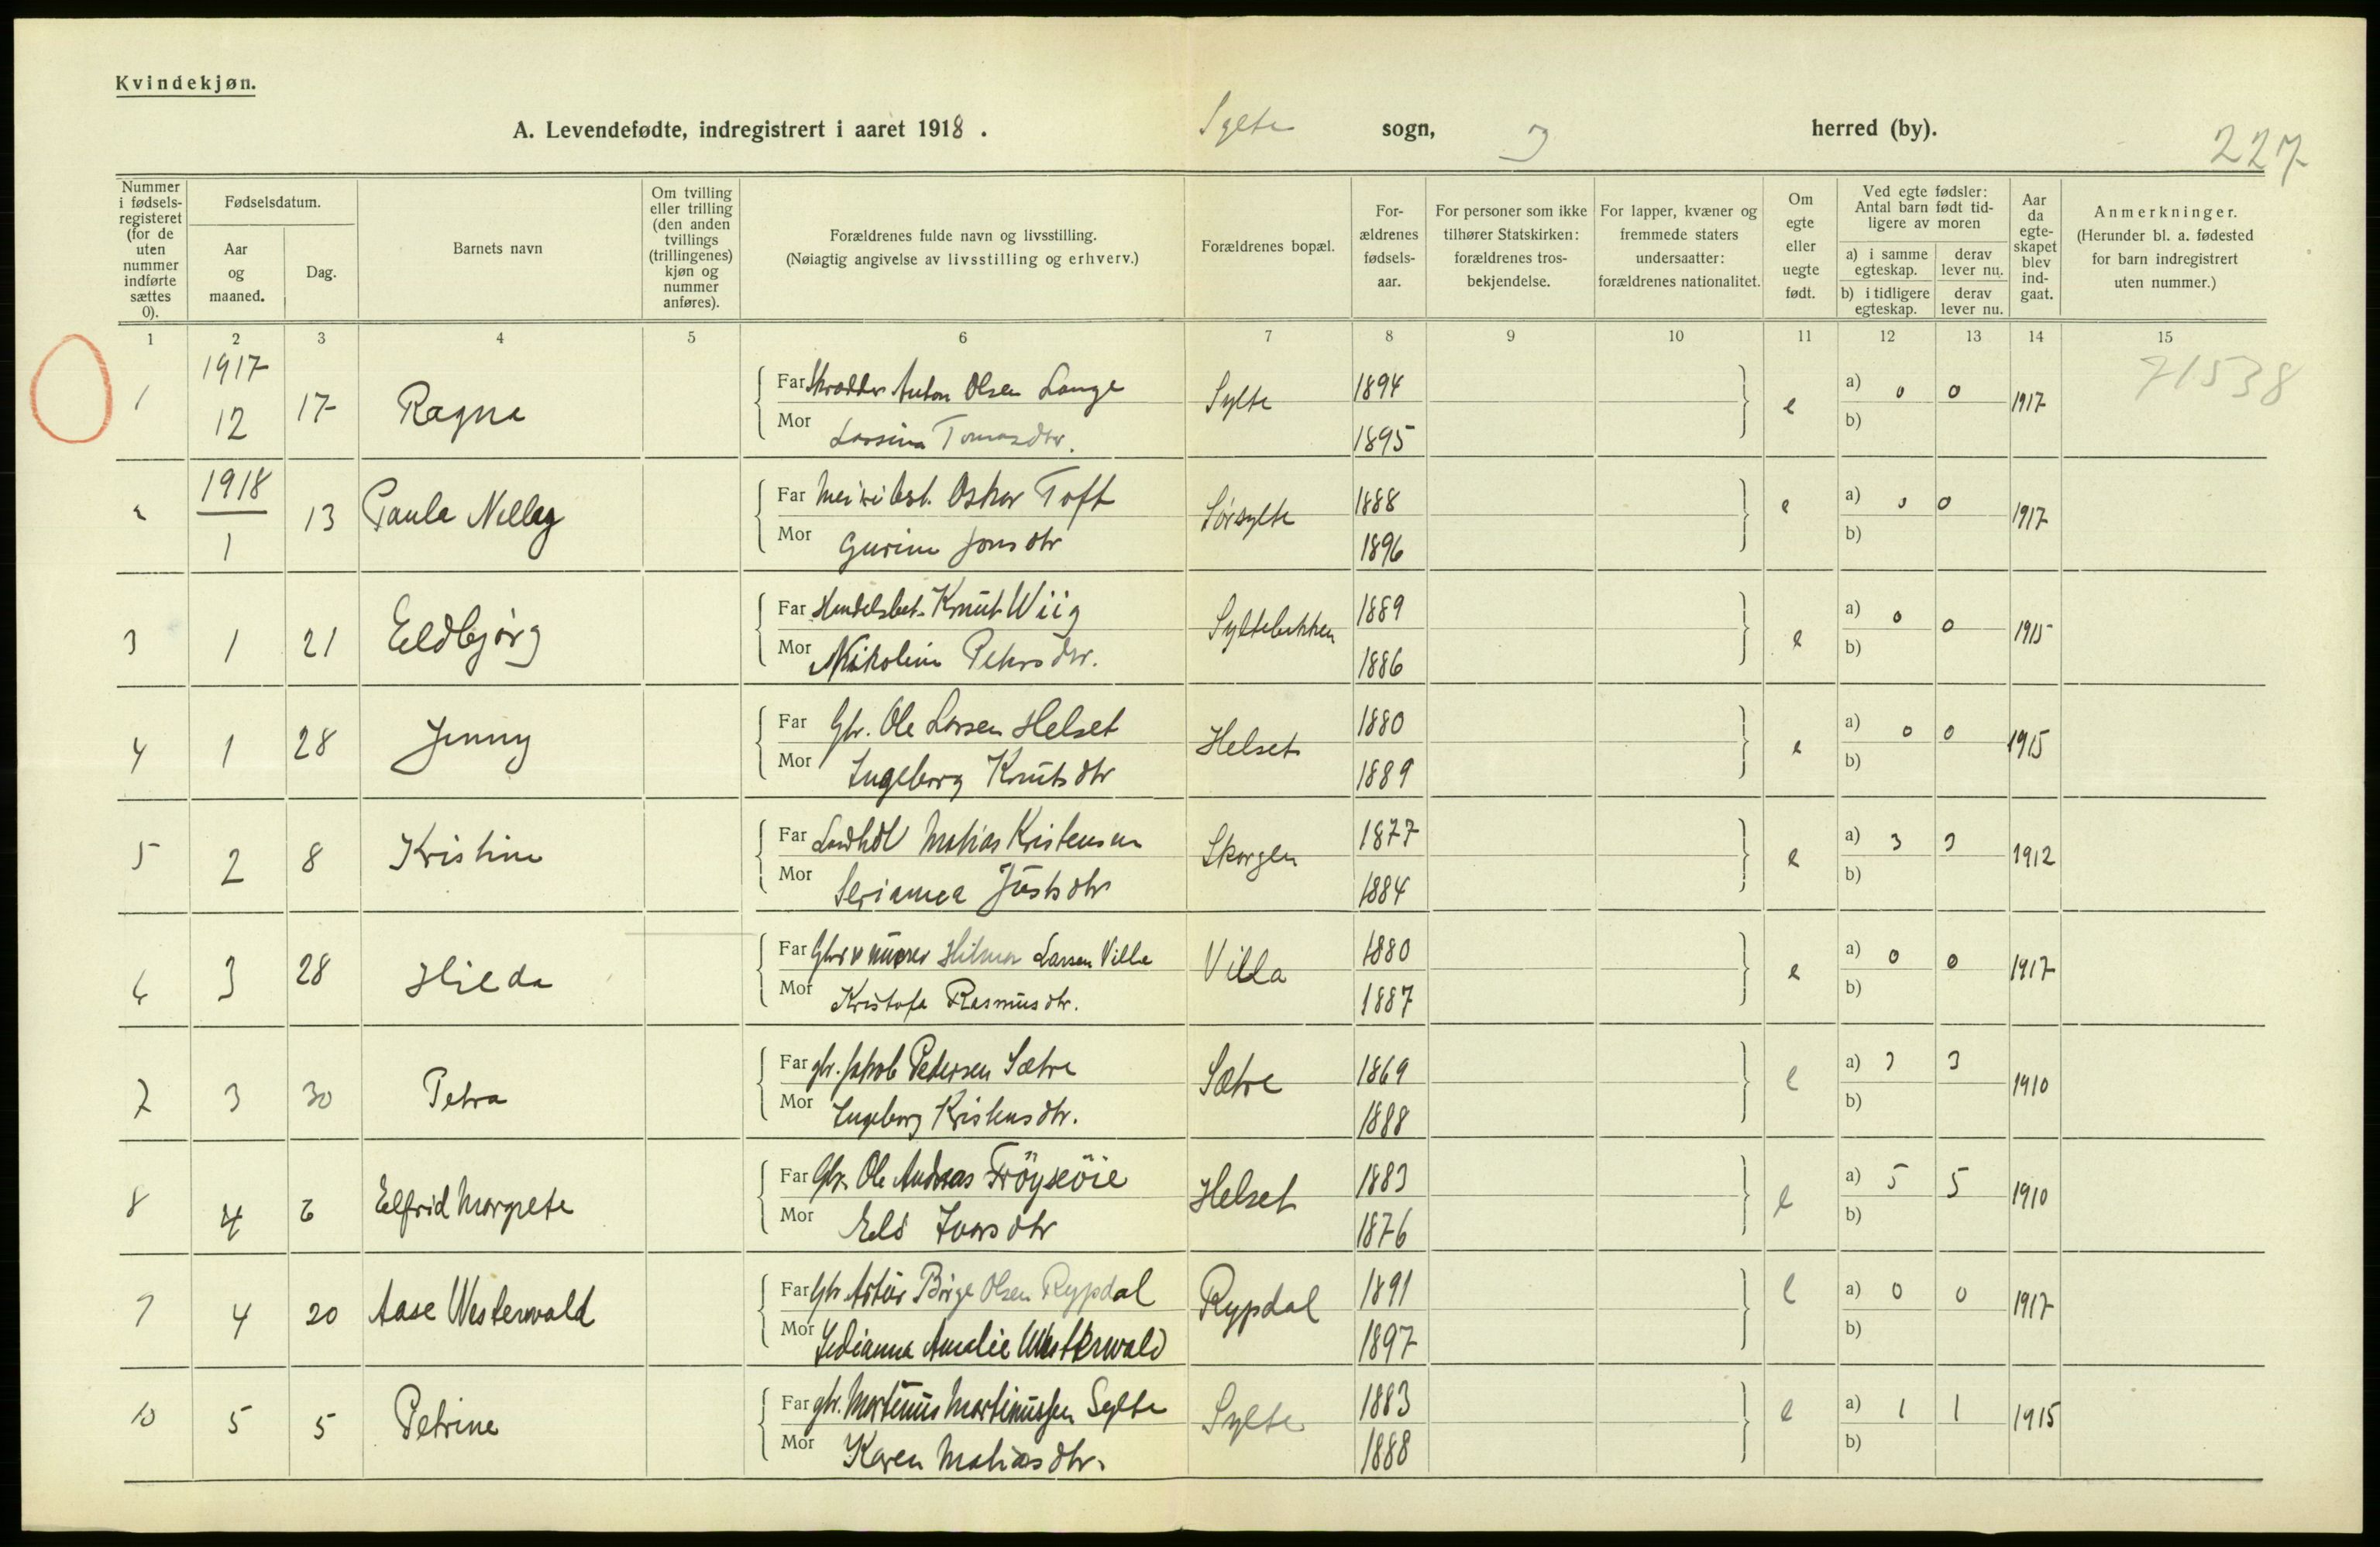 Kvindekjøn.
A. Levendefødte, indregistrert i aaret 1918 . Sylte sogn, herred (by).
227
Nummer i fødsels-registeret (for de uten nummer indførte sættes 0).
Fødselsdatum.
Aar og maaned.
Dag.
Barnets navn
Om tvilling eller trilling (den anden tvillings (trillingenes) kjøn og nummer anføres).
Forældrenes fulde navn og livsstilling.
(Nøiagtig angivelse av livsstilling og erhverv.)
Forældrenes bopæl.
For-ældrenes fødsels-aar.
For personer som ikke tilhører Statskirken: forældrenes tros-bekjendelse.
For lapper, kvæner og fremmede staters undersaatter: forældrenes nationalitet.
Om egte eller uegte født.
Ved egte fødsler: Antal barn født tid-ligere av moren
a) i samme egteskap.
derav lever nu.
b) i tidligere egteskap.
derav lever nu.
Aar da egte-skapet blev ind-gaat.
Anmerkninger.
(Herunder bl. a. fødested for barn indregistrert uten nummer.)
1 2 3 4 5 6 7 8 9 10 11 12 13 14 15
71538
1 1917 12 17 Ragna Far Skrædder Anton Olsen Lange Sylte 1894 e a) 0 0 1917
Mor Lassina Tomasdtr. 1895 b)
2 1918 1 13 Paula Nelly Far Meieribest. Oskar Toft Sørsylte 1888 e a) 0 0 1917
Mor Gurine Jonsdtr 1896 b)
3 1 21 Eldbjørg Far Handelsbet. Knut Wiig Syltebakken 1889 e a) 0 0 1915
Mor Nikoline Petersdtr. 1886 b)
4 1 28 Jenny Far Gbr. Ole Larsen Helset Helset 1880 e a) 0 0 1915
Mor Ingeborg Knutsdtr 1889 b)
5 2 8 Kristine Far Landhdl Matias Kristensen Skorgen 1877 e a) 3 3 1912
Mor Serianna Justsdtr 1884 b)
6 3 28 Hilda Far Gbr & murer Hilmar Larsen Villa Villa 1880 e a) 0 0 1917
Mor Kristofa Rasmusdtr. 1887 b)
7 3 30 Petra Far gbr. Jakob Pedersen Sætre Sætre 1869 e a) 3 3 1910
Mor Ingeborg Kristensdtr. 1888 b)
8 4 6 Elfrid Margrete Far Gbr. Ole Andreas Frøysøie Helset 1883 e a) 5 5 1910
Mor Eli Iversdtr 1876 b)
9 4 20 Aase Westerwald Far Gbr Artur Børge Olsen Rypdal Rypdal 1891 e a) 0 0 1917
Mor Amalie Westerwald 1897 b)
10 5 5 Petrine Far gbr. Martinus Martinussen Sylte Sylte 1883 e a) 1 1 1915
Mor Karen Matiasdtr. 1888 b)